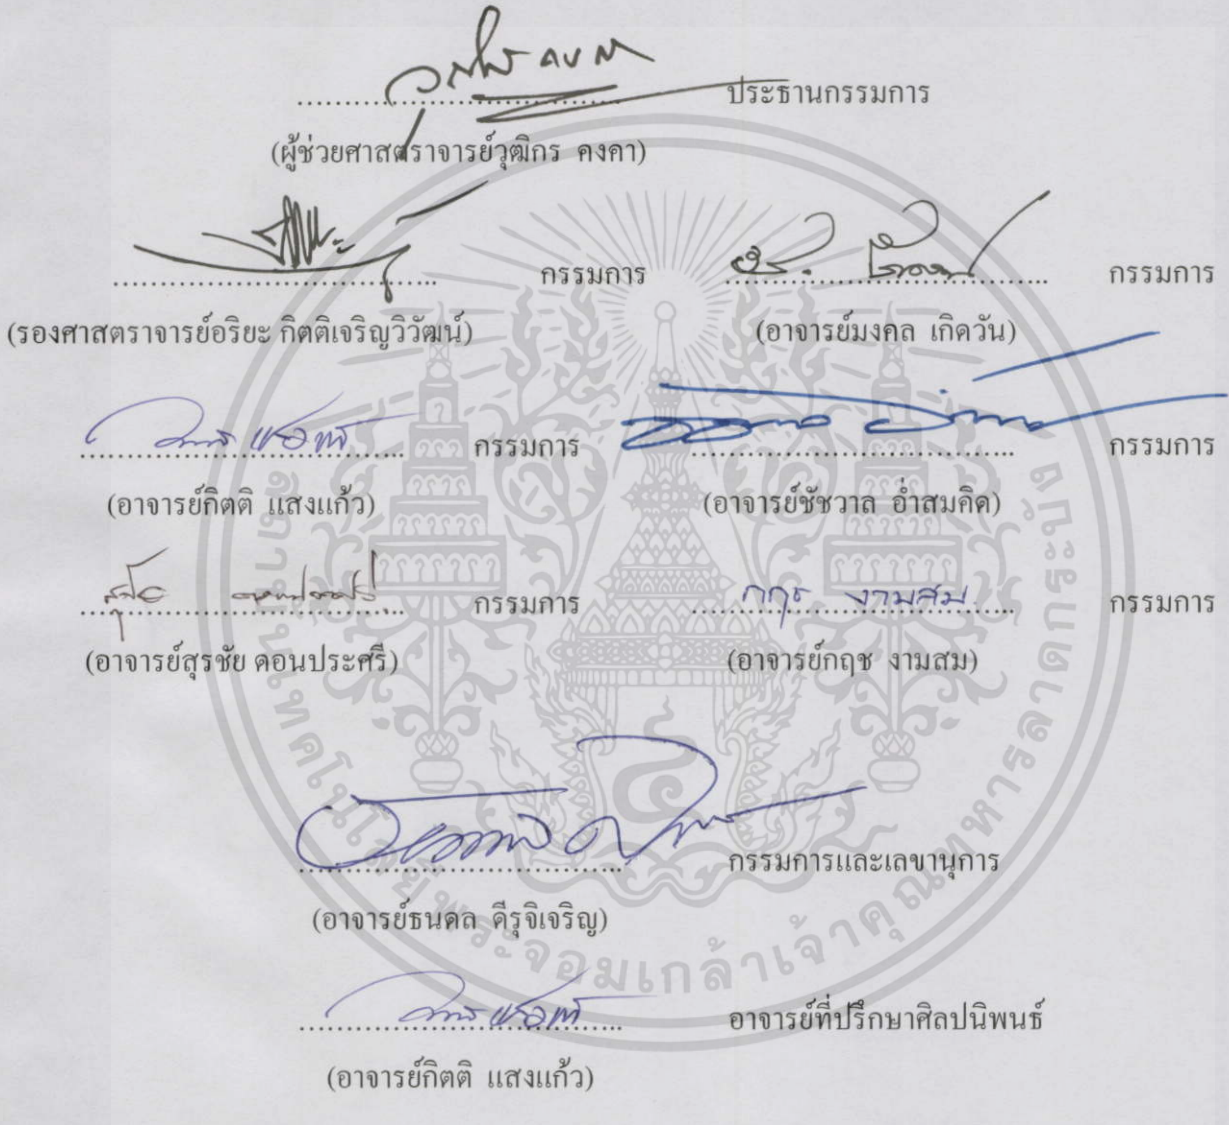 ประธานกรรมการ
(ผู้ช่วยศาสตราจารย์วุฒิกร คงคา)
กรรมการ กรรมการ
(รองศาสตราจารย์อริยะ กิตติเจริญวิวัฒน์) (อาจารย์มงคล เกิดวัน)
กรรมการ กรรมการ
(อาจารย์กิตติ แสงแก้ว) (อาจารย์ชัชวาล อ่ำสมคิด)
กฤช งามสม
กรรมการ กรรมการ
(อาจารย์สุรชัย ดอนประศรี) (อาจารย์กฤช งามสม)
กรรมการและเลขานุการ
(อาจารย์ธนดล ดีรุจิเจริญ)
อาจารย์ที่ปรึกษาศิลปนิพนธ์
(อาจารย์กิตติ แสงแก้ว)
สถาบันเทคโนโลยีพระจอมเกล้าเจ้าคุณทหารลาดกระบัง